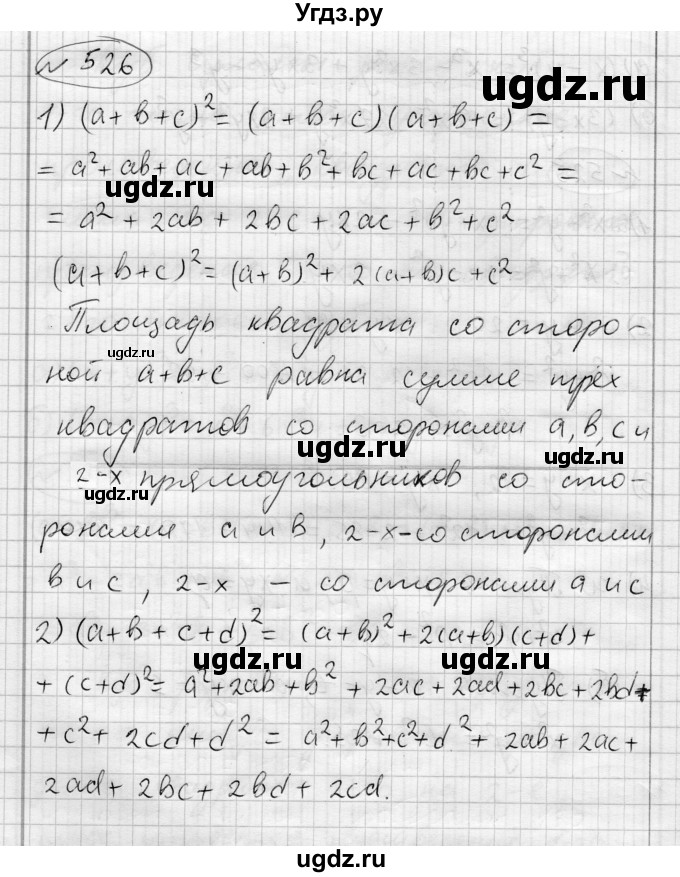 Угдз.ру
№ 526
ugdz.ru
1) (a + b + c)² = (a + b + c)(a + b + c) =
= a² + ab + ac + ab + b² + bc + ac + bc + c² =
ugdz.ru
ugdz.ru
= a² + 2ab + 2bc + 2ac + b² + c²
(a + b + c)² = (a + b)² + 2(a + b)c + c²
Площадь квадрата со сторо-
ugdz.ru
ной a + b + c равна сумме трёх
квадратов со сторонами a, b, c и
ugdz.ru
ugdz.ru
2-х прямоугольников со сто-
ugdz.ru
ронами a и b, 2-х-со сторонами
b и c, 2-х - со сторонами a и c
2) (a + b + c + d)² = (a + b)² + 2(a + b)(c + d) +
ugdz.ru
ugdz.ru
+ (c + d)² = a² + 2ab + b² + 2ac + 2ad + 2bc + 2bd +
+ c² + 2cd + d² = a² + b² + c² + d² + 2ab + 2ac +
2ad + 2bc + 2bd + 2cd.
ugdz.ru
ugdz.ru